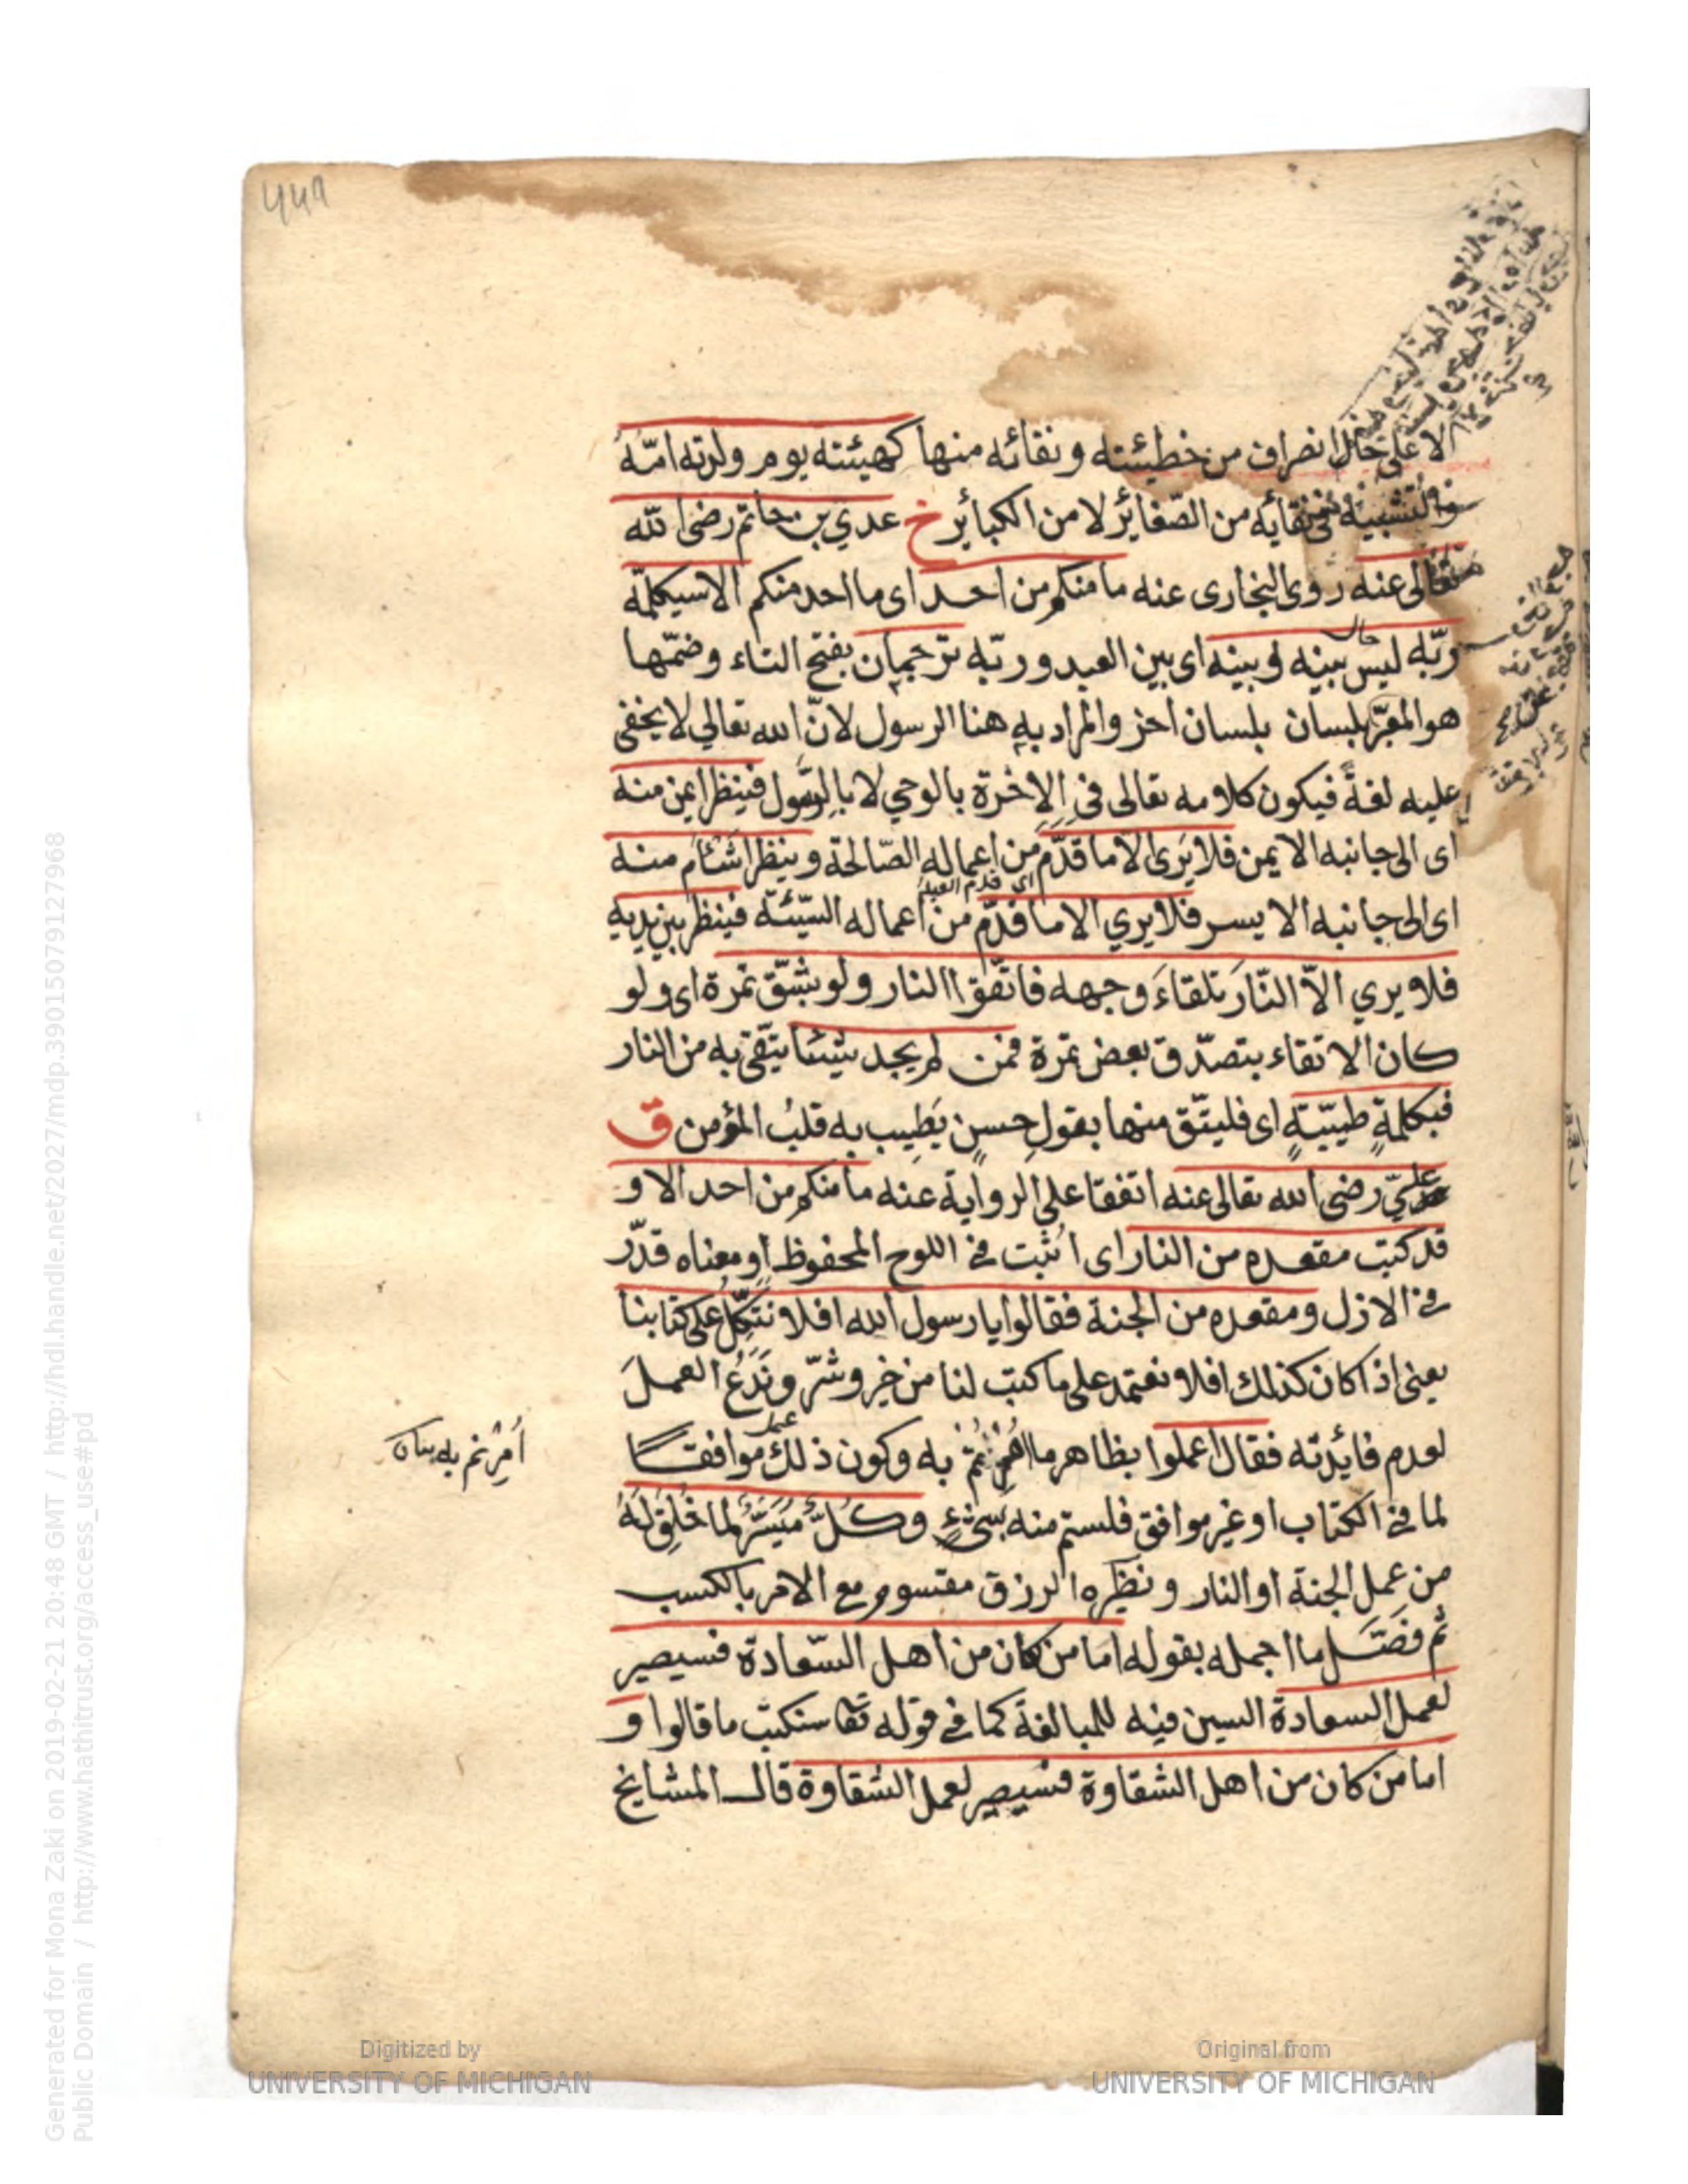 الا على حال انصراف من خطيئته ونقائه منها كهيئته يوم ولدته امّهُ
والتشبيه في نقايه من الصّغائر لا من الكبائر خ عدي بن حاتم رضى الله
تعالى عنه روى البخارى عنه ما منكم من احد اى ما احد منكم الا سيكلمّه
ربّه ليس بينه وبينه اى بين العبد وربّه ترجمان بفتح التاء وضمّها
هو المعبّر بلسان بلسان اخر والمراد به هنا الرسول لانّ الله تعالي لا يخفى
عليه لغةً فيكون كلامه تعالى في الاخرة بالوحي لا بالرّسول فينظر ايمن منه
اى الى جانبه الايمن فلا يَرى الا ما قدّم من اعماله الصّالحة وينظر اشئام منه
اى قدم العبد
اى الى جانبه الايسر فلا يري الا ما قدّم من اعماله السّيّئة فينظر بين يديه
فلا يري الاّ النّارَ تلقاءَ وجهه فاتّقوا النار ولو بشّق تمرة اى ولو
كان الاتقاء بتصدّق بعض تمرة فمن لم يجد شيئا يتّقى به من النار
فبكلمةٍ طيبّةٍ اى فليتّق منها بقولٍ حسنٍ يَطِيب به قلبُ المؤمن ق
عليّ رضى الله تعالى عنه اتفقا علي الرواية عنه ما منكم من احد الا و
قد كتب مقعده من النار اى اثبت في اللوح المحفوظ او معناه قدّر
في الازل ومقعده من الجنة فقالوا يا رسول الله افلا نتّكلُ على كتابنا
يعنى اذا كان كذلك افلا نعتمد على ما كتب لنا من خير وشرّ ونَدَعُ العملَ
امرتم به بيان
لعدم فائدته فقال اعملوا بظاهر ما امرتم به وكون ذلك موافقا
لما في الكتاب او غير موافق فلستم منه بشىءٍ وكلٌّ مُيَسَّرٌ لما خُلِقَ لَهُ
من عمل الجنة او النار ونظيره الرزق مقسوم مع الامر بالكسب
ثم فصّل ما اجمله بقوله اما من كان من اهل السّعادة فسيصير
لعمل السعادة السين فيه للمبالغة كما في قوله تعا سنكتب ما قالوا و
اما من كان من اهل الشقاوة فسيصير لعمل الشقاوة قال المشايخ
Digitized by
UNIVERSITY OF MICHIGAN
Original from
UNIVERSITY OF MICHIGAN
Generated for Mona Zaki on 2019-02-21 20:48 GMT / http://hdl.handle.net/2027/mdp.39015079127968
Public Domain / http://www.hathitrust.org/access_use#pd